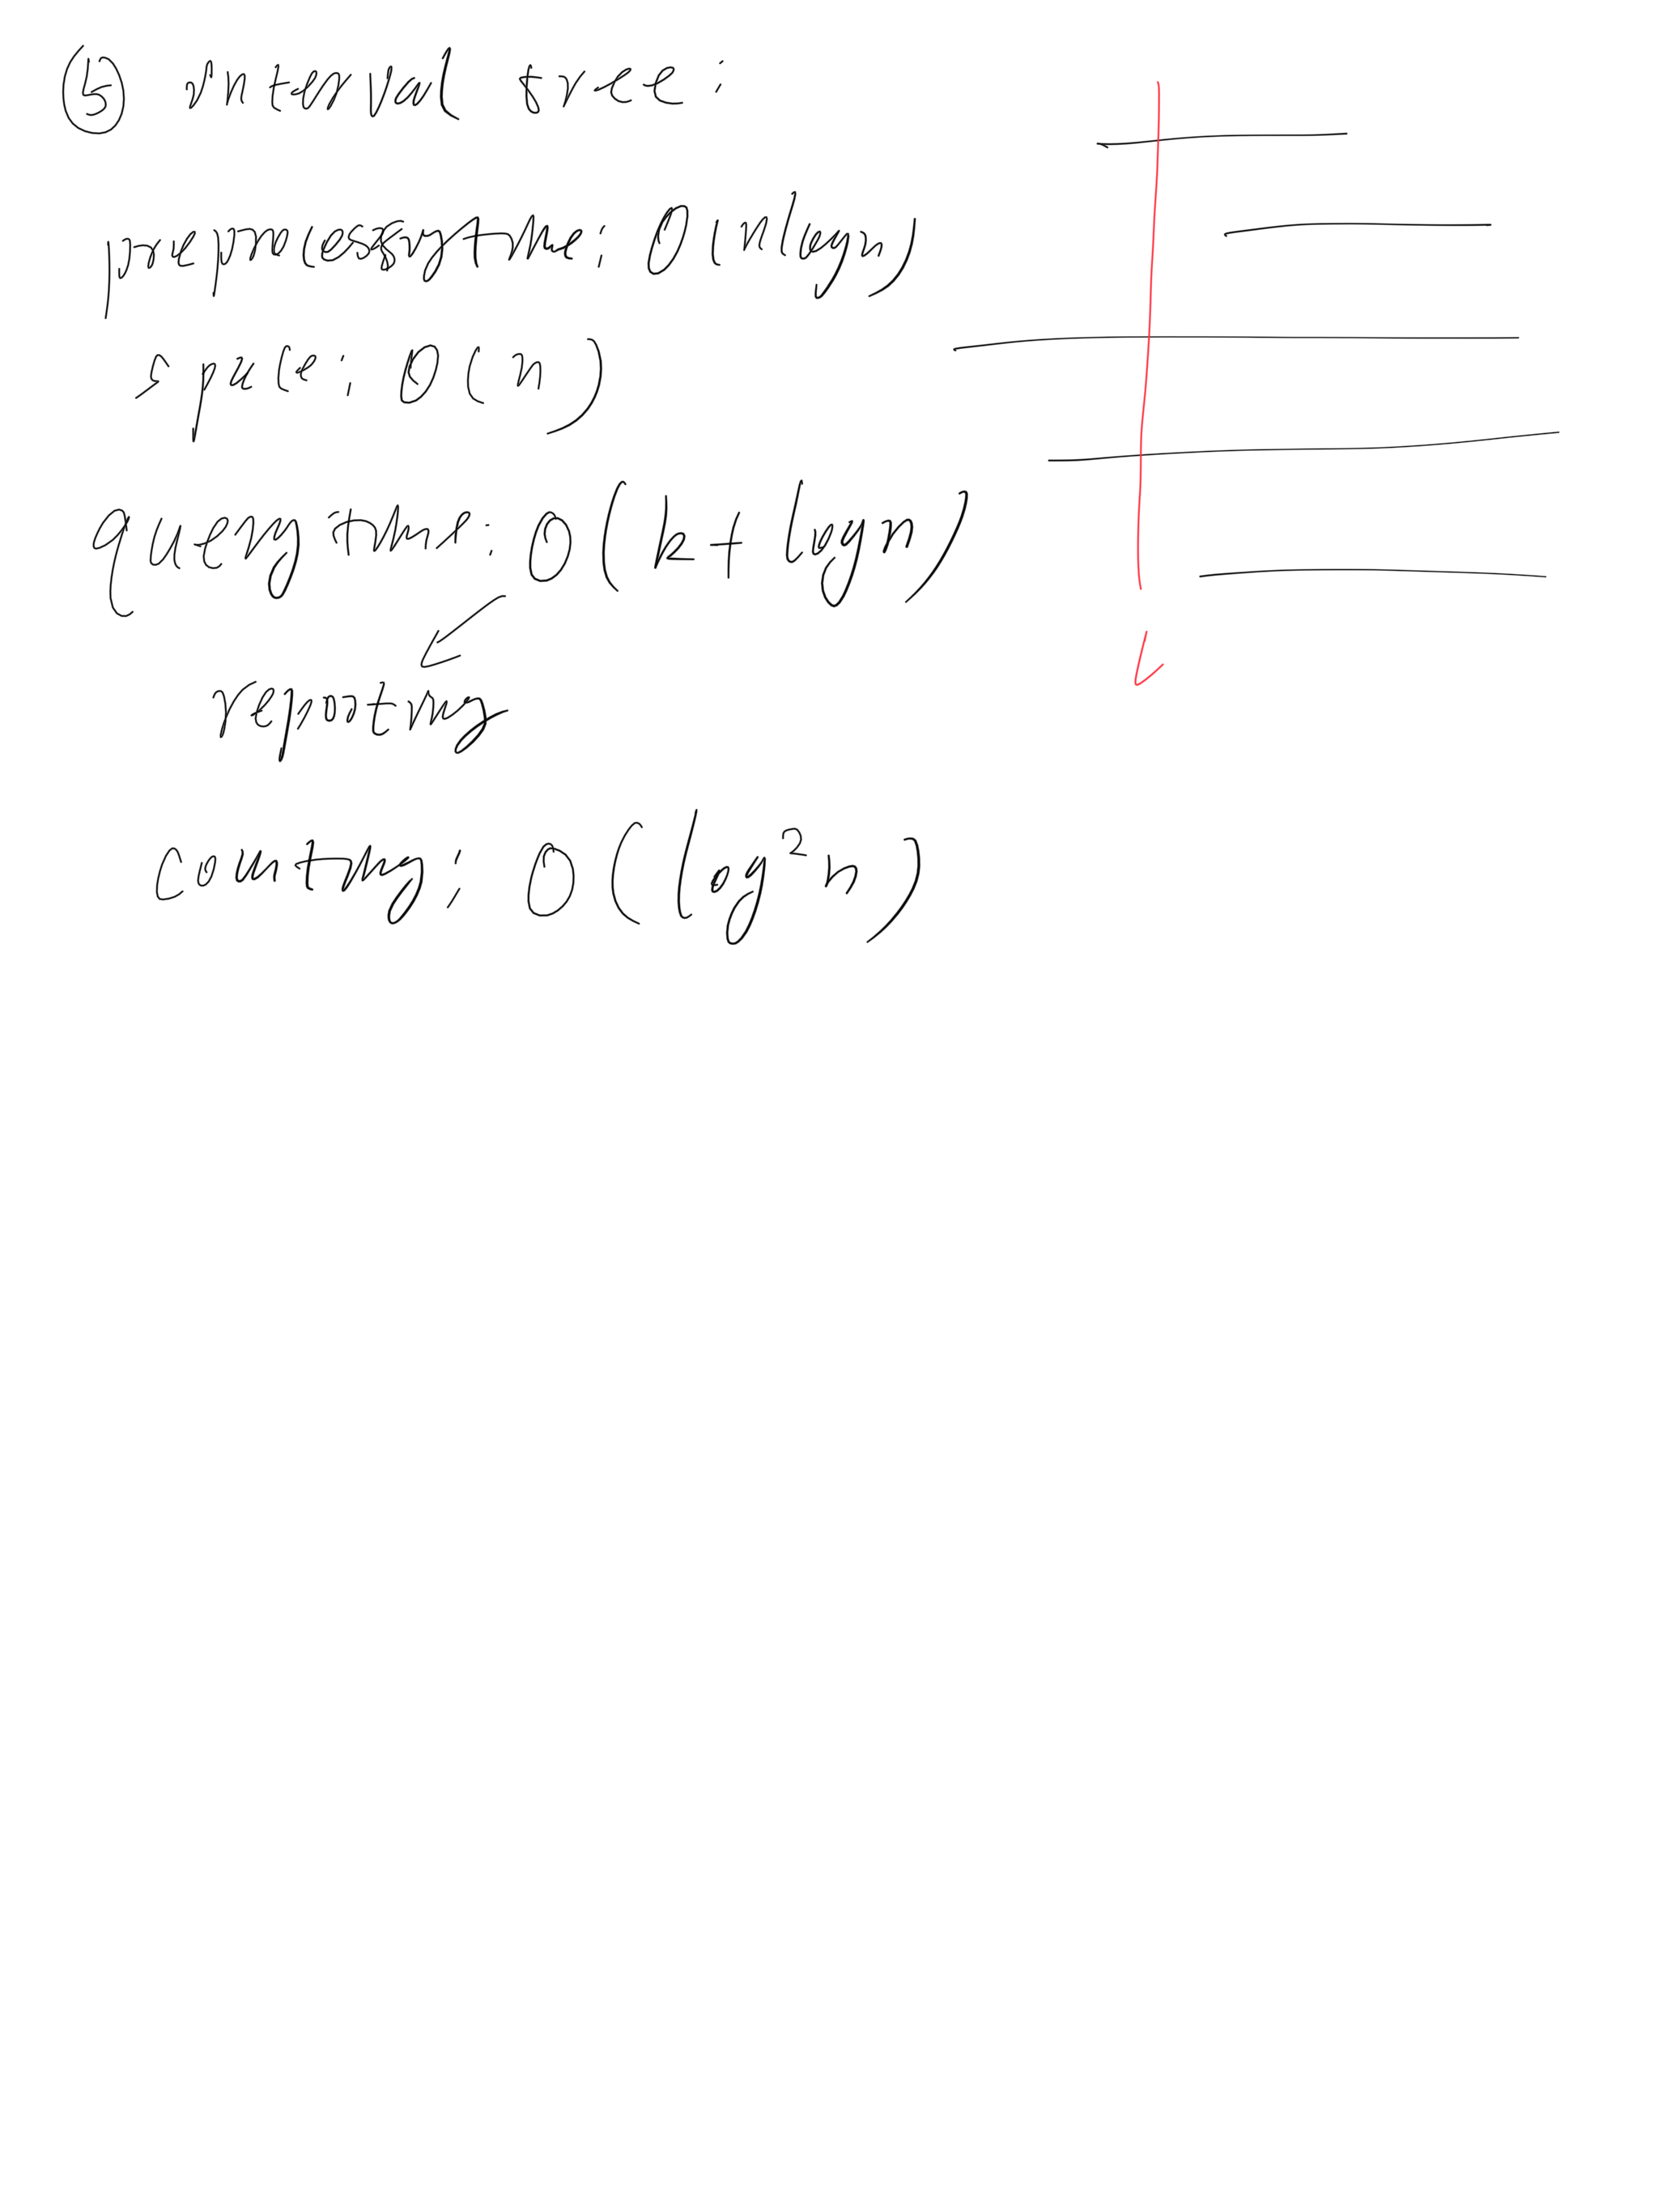 ⑤ interval tree:
preprocessing time: O(nlogn)
space: O(n)
query time: O(k+logn)
reporting
counting: O(log²n)